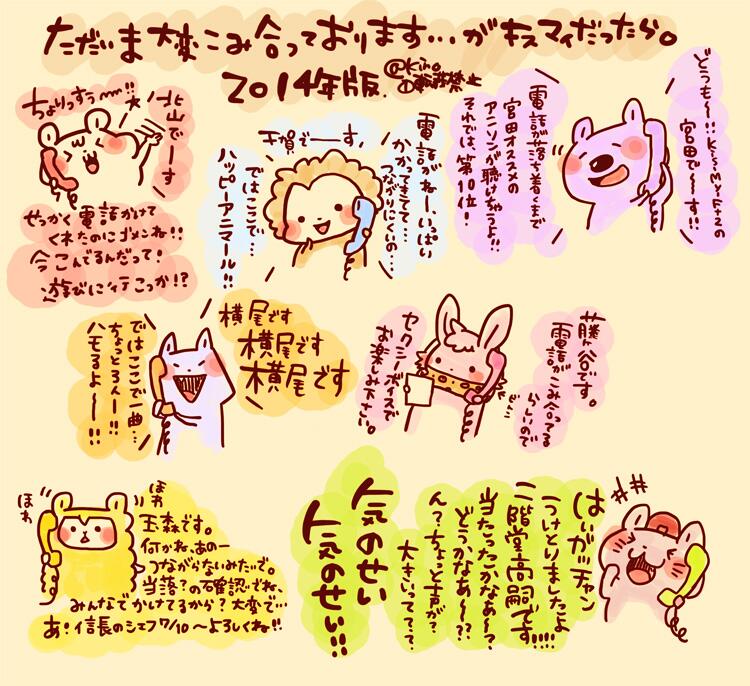 ただいま大変こみ合っております…がキスマイだったら。
2014年版
@Kino
転載禁止
どうも〜!!Kis-My-Ft2の
宮田で〜す!!
電話が落ち着くまで
宮田オススメの
アニソンが聴けちゃうよ!!
それでは、第10位!
千賀で一す
電話がねー、いっぱい
かかってきてて…
つながりにくいの…
ではここで…
ハッピーアニマール!!
北山でーす
ちょりっすぅ〜!!
せっかく電話かけて
くれたのにゴメンね!!
今こんでるんだって!
遊びに行こっか!?
藤ヶ谷です。
電話がこみ合ってる
らしいので
セクシーボイスで
お楽しみ下さい。
横尾です
横尾です
横尾です
ではここで一曲…
ちょっと3人ー!!
ハモるよ〜!!
はいガッチャン
つけとりましたよ
二階堂高嗣です!!!!
当たったかなぁ〜?
どうかなぁ〜??
ん?ちょっと声が?
大きいって??
気のせい
気のせい!!
ほわ
ほわ
玉森です。
何かね、あのー
つながらないみたいで。
当落?の確認でね、
みんなでかけてるから?大変で…
あ!信長のシェフ7/10〜よろしくね!!